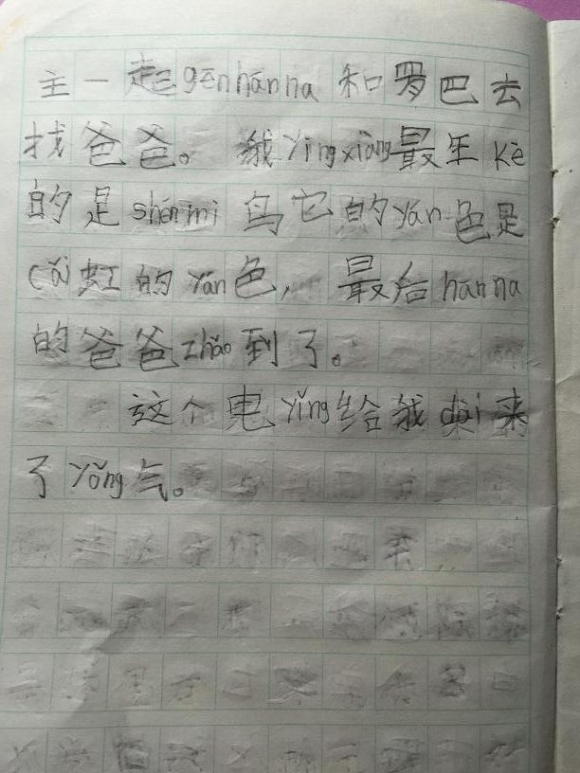 主一起gēnhānna和罗巴去
找爸爸。我yìngxiàng最生kè
的是shénmì鸟它的yán色是
cǎi虹的yán色,最后hanna
的爸爸zhǎo到了。
这个电yǐng给我dài来
了yǒng气。